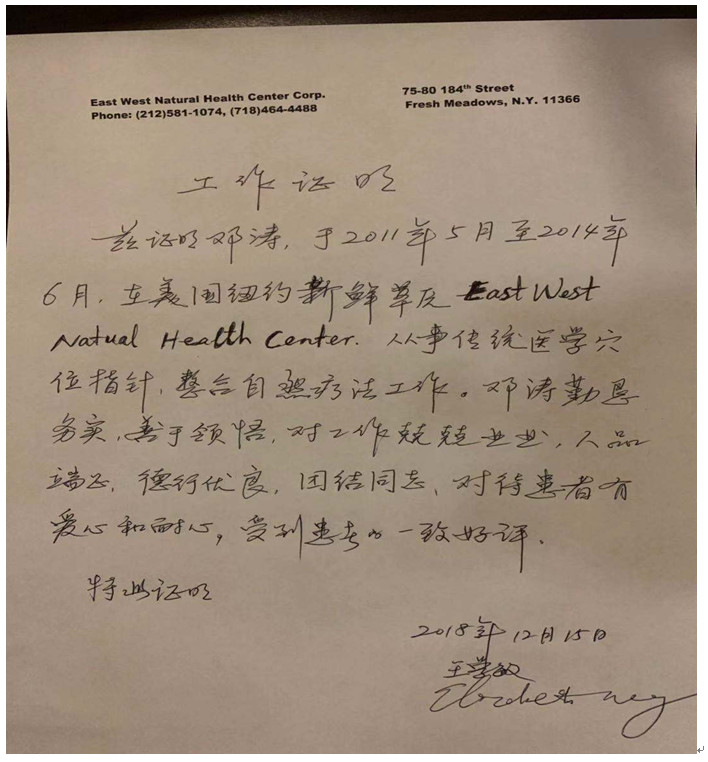 East West Natural Health Center Corp.
Phone: (212)581-1074, (718)464-4488
75-80 184th Street
Fresh Meadows, N.Y. 11366
工作证明
兹证明邓涛,于2011年5月至2014年
6月,在美国纽约新鲜草原East West
Natual Health Center. 从事传统医学穴
位指针,整合自然疗法工作。邓涛勤恳
务实,善于领悟,对工作兢兢业业,人品
端正,德行优良,团结同志,对待患者有
爱心和耐心,受到患者的一致好评.
特此证明
2018年12月15日
王学敏